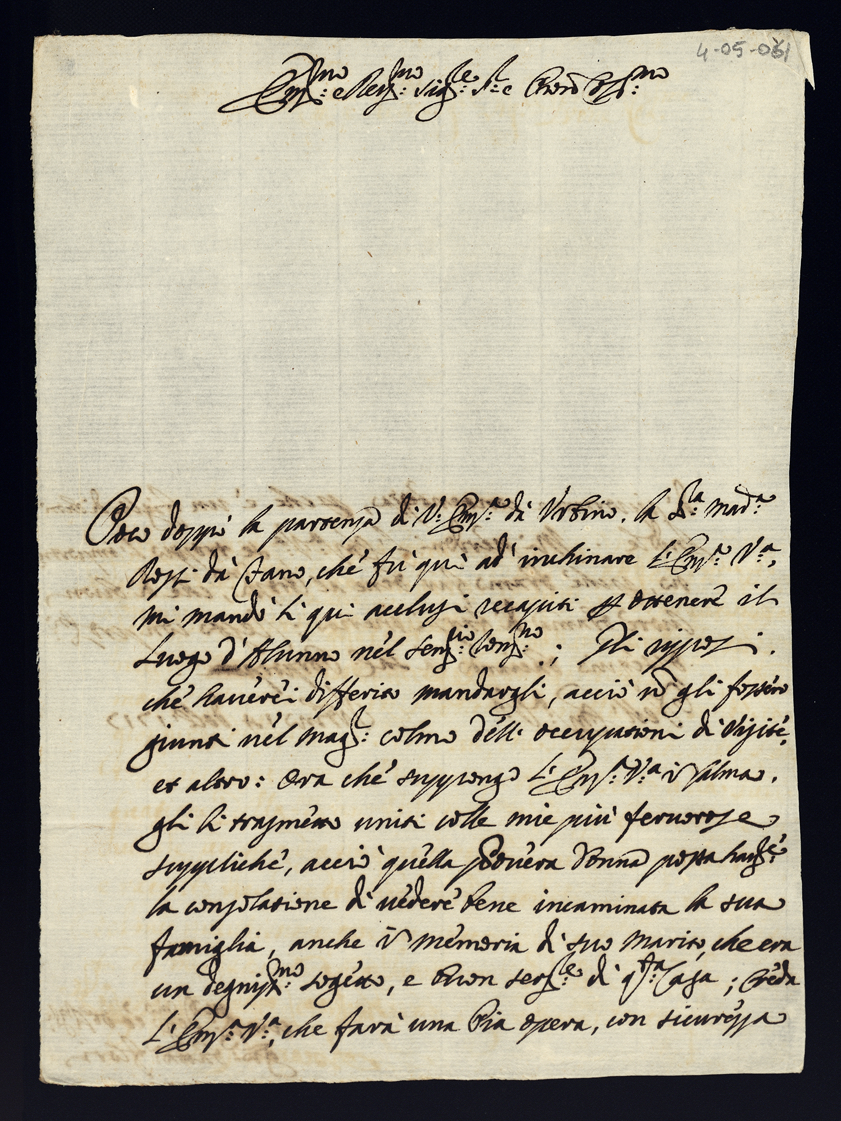 4-05-061
Em:mo e Rev:mo Sig:re Sr: e Pron Col:mo
Poco doppò la partenza di V: Em:a dà Urbino, la Sra: Madª
Rossi dà Fano, chè fù quì ad' inchinare l'Em:a V:a,
mi mandò li quì acclusi recapiti per ottenere il
luogo d'Alunno nèl Sem:rio Rom:no; Gli risposi
chè haverèi differito mandargli, acciò nõ gli fossèro
giunti nèl mag:r colmo dèll' occupationi dì Visitè,
et altro: Ora chè suppongo l'Em:a V:a in Calma,
gli li trasmetto uniti colle mie più fervorose
supplichè, acciò quèlla Povèra Donna possa havere
la consolatione dì vèdèrè bene incaminata la sua
famiglia, anche in mèmoria dì suo Marito, che era
un degniss:mo sogètto, e buon ser:re di q:sta Casa; Crèda
l'Em:a V:a, che farà una Pia opera, con sicurèzza